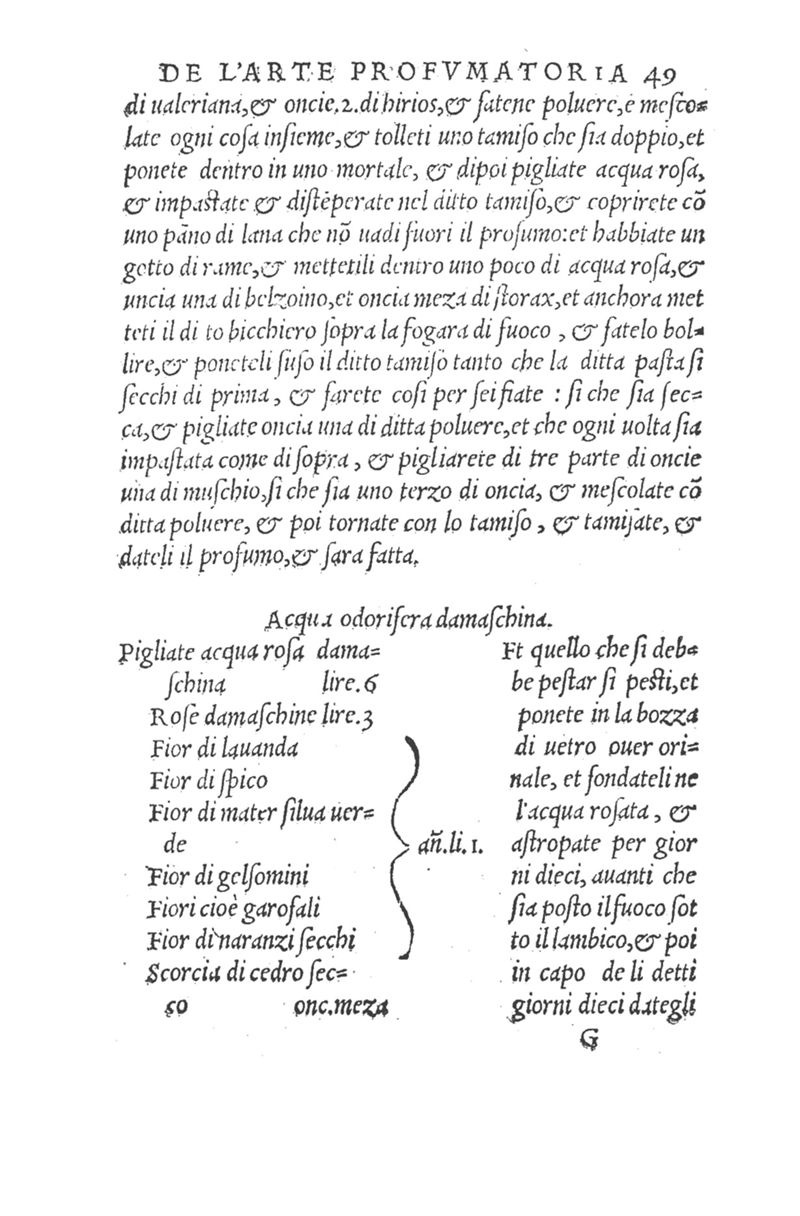 DE L'ARTE PROFVMATORIA 49
di ualeriana,& oncie.2.di hirios,& fatene poluere,e meſco=
late ogni coſa inſieme,& tolleti uno tamiſo che ſia doppio,et
ponete dentro in uno mortale, & dipoi pigliate acqua roſa,
& impaſtate & diſtēperate nel ditto tamiſo,& coprirete cō
uno pāno di lana che nō uadi fuori il profumo:et habbiate un
gotto di rame,& mettetili dentro uno poco di acqua roſa,&
uncia una di belzoino,et oncia meza di ſtorax,et anchora met
teti il di to bicchiero ſopra la fogara di fuoco , & fatelo bol=
lire,& poneteli ſuſo il ditto tamiſo tanto che la ditta paſta ſi
ſecchi di prima , & farete coſi per ſei fiate : ſi che ſia ſec=
ca,& pigliate oncia una di ditta poluere,et che ogni uolta ſia
impaſtata come di ſopra , & pigliarete di tre parte di oncie
una di muſchio,ſi che ſia uno terzo di oncia, & meſcolate cō
ditta poluere, & poi tornate con lo tamiſo , & tamiſate, &
dateli il profumo,& ſara fatta.
Acqua odorifera damaſchina.
Pigliate acqua roſa dama=
ſchina lire.6
Roſe damaſchine lire.3
Fior di lauanda
Fior di ſpico
Fior di mater ſilua uer=
de
Fior di gelſomini
Fiori cioè garofali
Fior di naranzi ſecchi
añ.li.1.
Scorcia di cedro ſec=
co onc.meza
Et quello che ſi deb=
be peſtar ſi peſti,et
ponete in la bozza
di uetro ouer ori=
nale, et fondateli ne
l'acqua roſata , &
aſtropate per gior
ni dieci, auanti che
ſia poſto il fuoco ſot
to il lambico,& poi
in capo de li detti
giorni dieci dategli
G